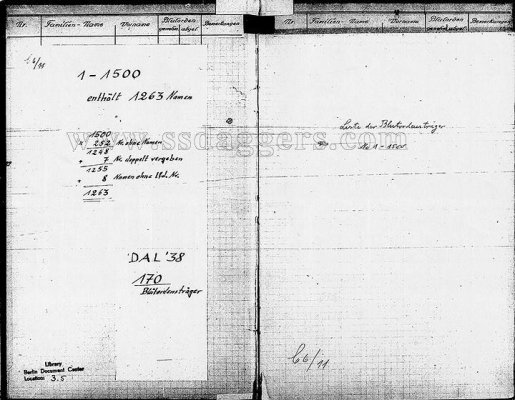 Nr. Familien-Name Vorname Blutorden Bemerkungen
C6/11
1-1500
enthält 1263 Namen
1500
252 Nr. ohne Namen
1248
+ 7 Nr. doppelt vergeben
1255
+ 8 Namen ohne lfd. Nr.
1263
DAL '38
170
Blutordensträger
Library
Berlin Document Center
Location 3.5
Nr. Familien-Name Vorname Blutorden Bemerkungen
Liste der Blutordensträger
Nr 1-1500
C6/11
www.ssdaggers.com